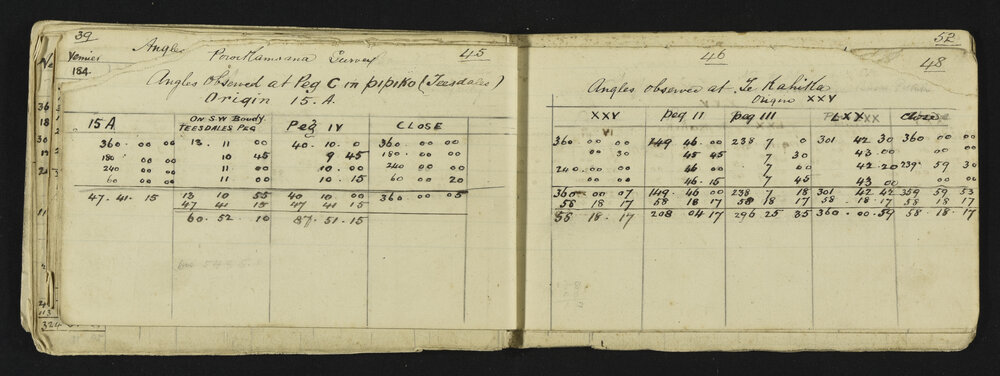 39
Angles
Survey
45
Vernier
184
Angles Observed at Peg C in pipiko (Teesdales)
Origin 15. A.
15 A
ON S.W Boudy
TEESDALES PEG
Peg IV
CLOSE
360 00 00 13 11 00 40 10 0 360 00 00
180 00 00 10 45 9 45 180 00 00
240 00 00 11 00 10 00 240 00 00
60 00 00 11 00 10 15 60 00 20
47 41 15 13 10 55 40 10 00 360 00 05
47 41 15 47 41 15
60 52 10 87 51 15
52
46
48
Angles observed at Te Kahika
Origin XXV
XXV Peg II peg III LXX Close
360 00 00 149 46 00 238 7 0 301 42 30 360 00 00
00 30 45 45 7 30 43 00 00 00
240 00 00 46 00 7 00 42 20 239 59 30
00 00 46 15 7 45 43 00 00 00
360 00 07 149 46 00 238 7 18 301 42 42 359 59 53
58 18 17 58 18 17 58 18 17 58 18 17 58 18 17
58 18 17 208 04 17 296 25 35 360 00 59 58 18 17